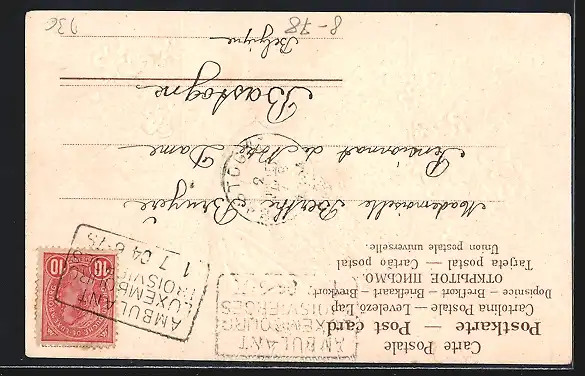 Carte Postale
Postkarte — Post card
Cartolina Postale — Levelező Lap
Dopisnice — Brefkort — Briefkaart — Brevkort
ОТКРЫТОЕ ПИСЬМО.
Tarjeta postal — Cartao postal
Union postale universelle.
AMBULANT
LUXEMBOURG
TROISVIERGES
AMBULANT
LUXEMBOURG
TROISVIERGES
1 7 04 6-7S
10 10
Mademoiselle Berthe Bruyère
Pensionnat de Notre Dame
Bastogne
Belgique
8-78
936